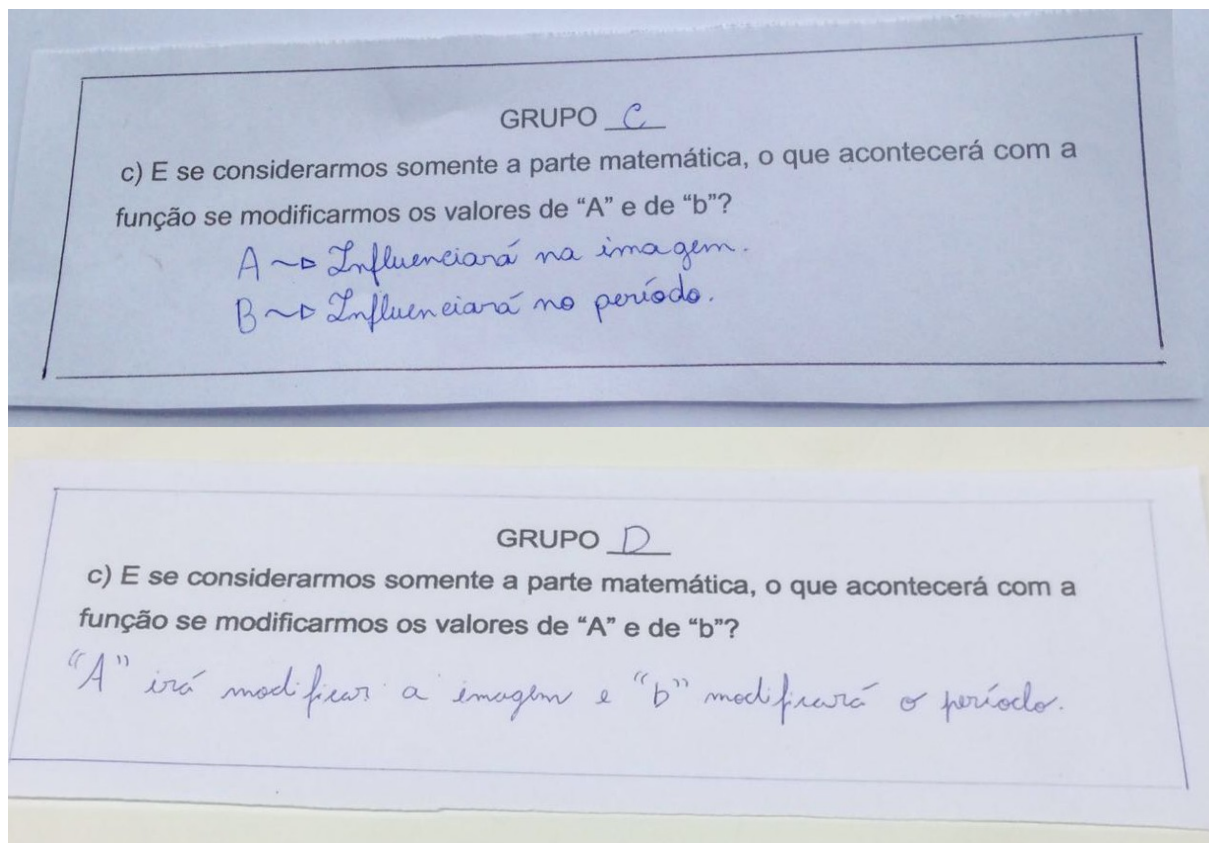 GRUPO C
c) E se considerarmos somente a parte matemática, o que acontecerá com a
função se modificarmos os valores de “A” e de “b”?
A ~▷ Influenciará na imagem.
B ~▷ Influenciará no período.
GRUPO D
c) E se considerarmos somente a parte matemática, o que acontecerá com a
função se modificarmos os valores de “A” e de “b”?
“A” irá modificar a imagem e “b” modificará o período.